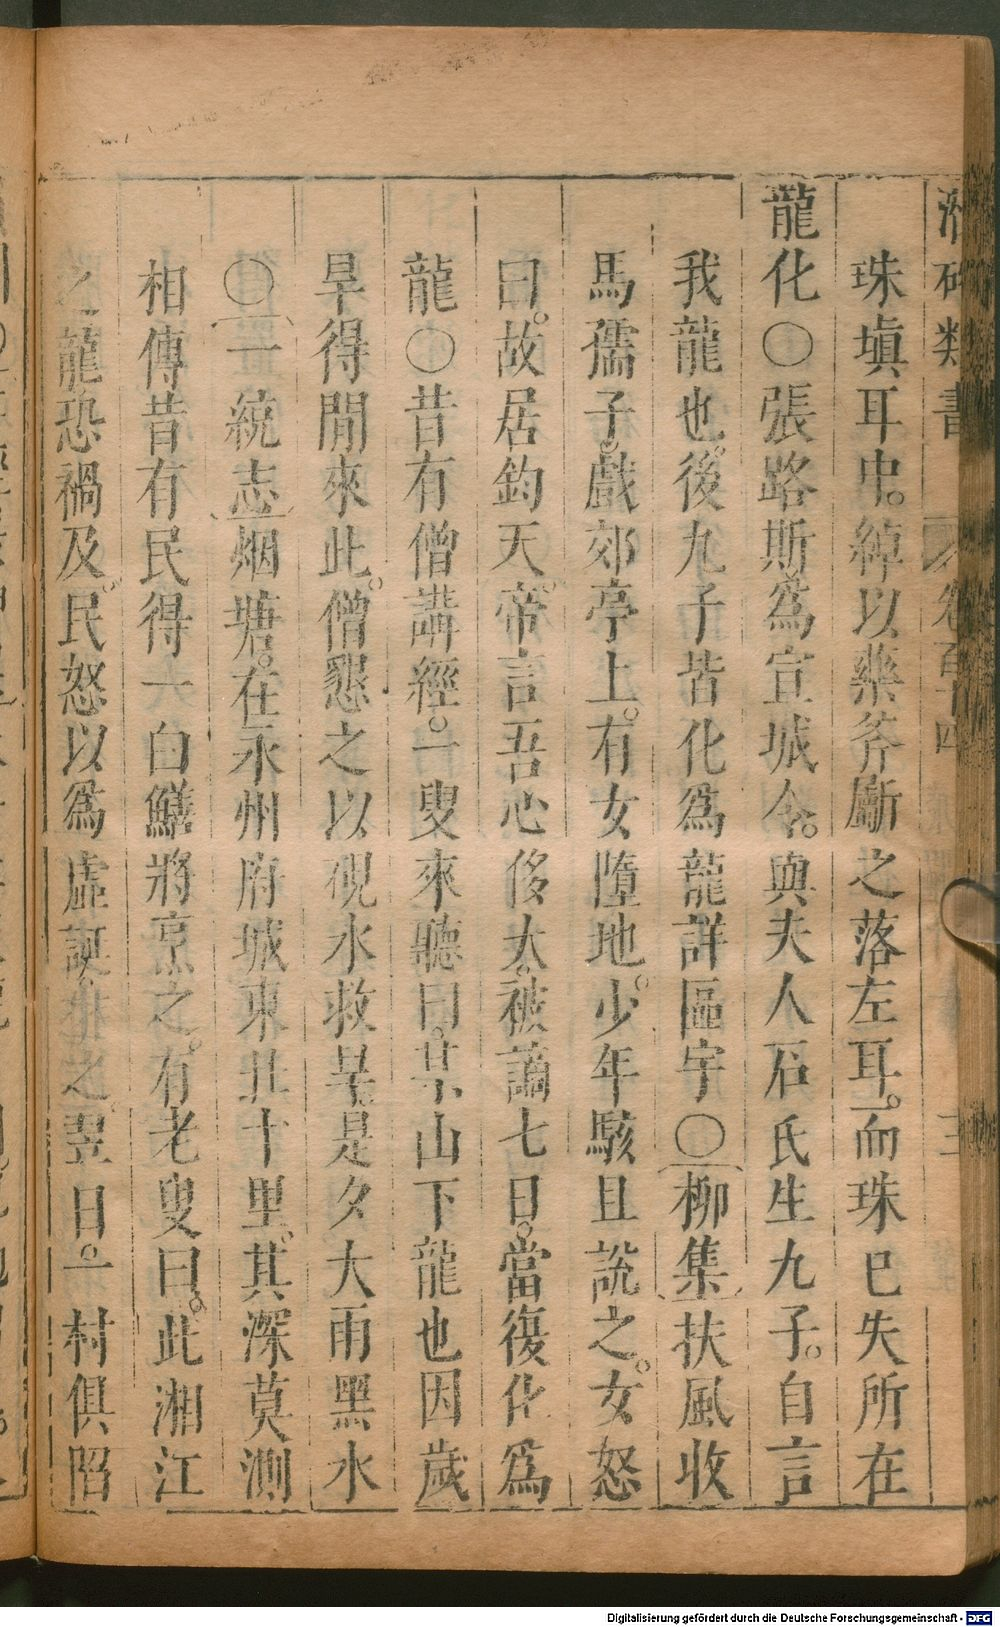 珠塡耳中。綽以藥斧斸之落左耳。而珠已失所在
龍化〇張路斯爲宣城令。與夫人石氏生九子。自言
我龍也。後九子皆化爲龍詳區宇〇柳集扶風收
馬孺子。戲郊亭上。有女墮地。少年駭且說之。女怒
曰。故居鈞天。帝言吾心侈大。被謫七日。當復化爲
龍〇昔有僧講經。一叟來聽曰。某山下龍也因歲
旱得閒來此。僧懇之以硯水救旱是夕大雨黑水
〇一統志烟塘。在永州府城東北十里。其深莫測
相傳昔有民得一白鱔將烹之。有老叟曰。此湘江
之龍恐禍及。民怒以爲虛誕。之。翌日。一村俱陷
類書 卷百十四 三
Digitalisierung gefördert durch die Deutsche Forschungsgemeinschaft - DFG